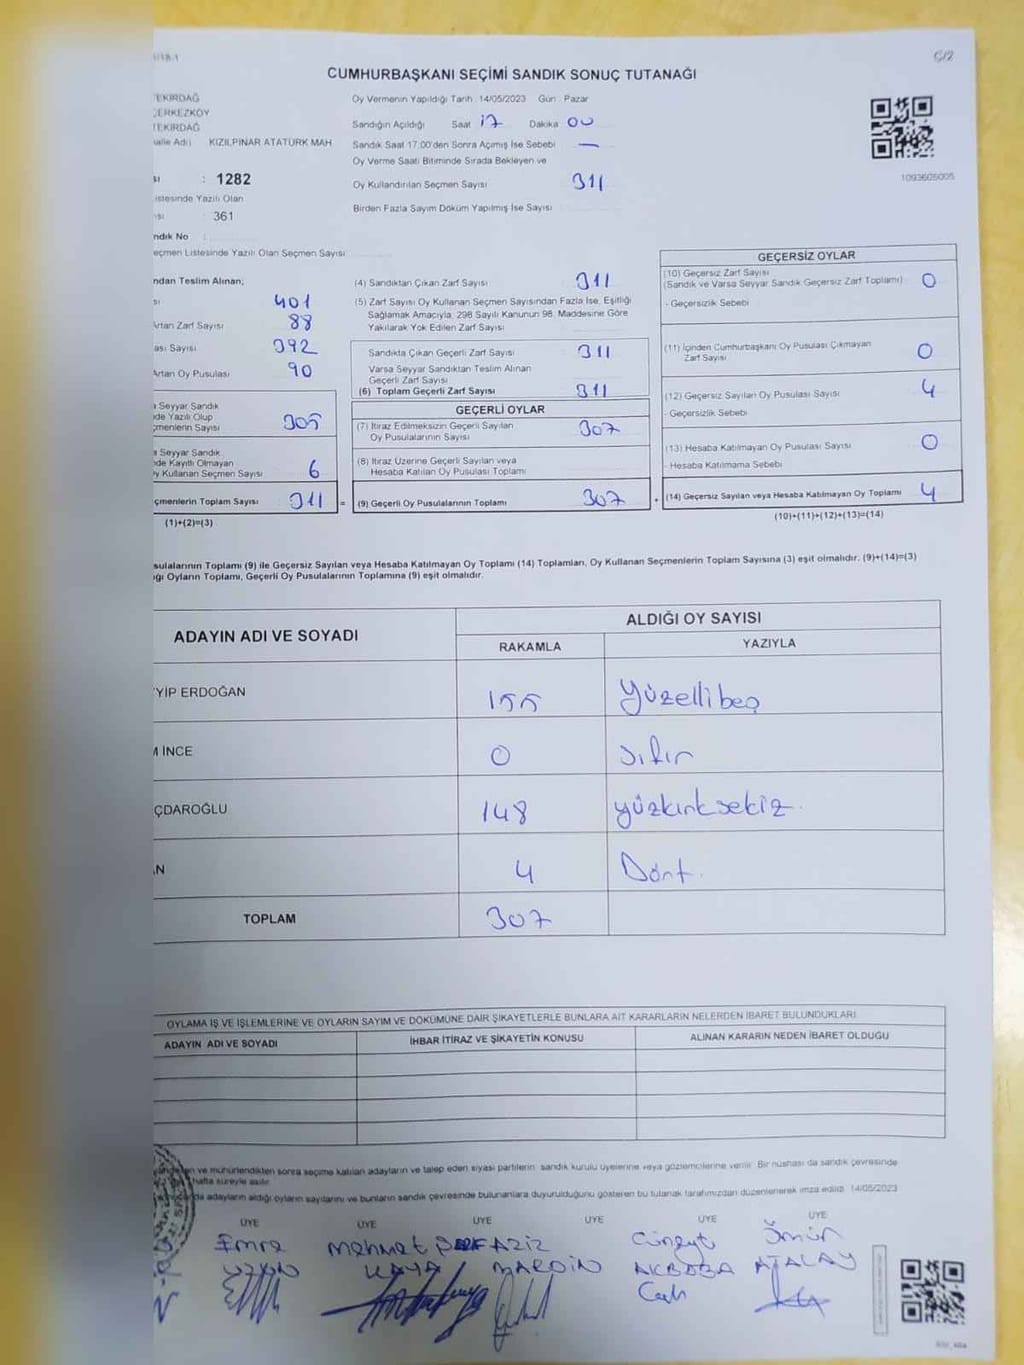 Ç/2
CUMHURBAŞKANI SEÇİMİ SANDIK SONUÇ TUTANAĞI
TEKİRDAĞ
ÇERKEZKÖY
TEKİRDAĞ
KIZILPINAR ATATÜRK MAH.
: 1282
Listesinde Yazılı Olan
: 361
ndık No :
eçmen Listesinde Yazılı Olan Seçmen Sayısı
Oy Vermenin Yapıldığı Tarih 14/05/2023 Gün : Pazar
Sandığın Açıldığı Saat 17 Dakika 00
Sandık Saat 17:00'den Sonra Açılmış İse Sebebi —
Oy Verme Saati Bitiminde Sırada Bekleyen ve
Oy Kullandırılan Seçmen Sayısı 311
Birden Fazla Sayım Döküm Yapılmış İse Sayısı
1093605005
ndan Teslim Alınan;
sı 401
Artan Zarf Sayısı 88
ası Sayısı 392
Artan Oy Pusulası 90
a Seyyar Sandık
de Yazılı Olup
çmenlerin Sayısı 305
a Seyyar Sandık
de Kayıtlı Olmayan
y Kullanan Seçmen Sayısı 6
çmenlerin Toplam Sayısı 311 =
(1)+(2)=(3)
(4) Sandıktan Çıkan Zarf Sayısı 311
(5) Zarf Sayısı Oy Kullanan Seçmen Sayısından Fazla İse, Eşitliği
Sağlamak Amacıyla, 298 Sayılı Kanunun 98. Maddesine Göre
Yakılarak Yok Edilen Zarf Sayısı
Sandıkta Çıkan Geçerli Zarf Sayısı 311
Varsa Seyyar Sandıktan Teslim Alınan
Geçerli Zarf Sayısı
(6) Toplam Geçerli Zarf Sayısı 311
GEÇERLİ OYLAR
(7) İtiraz Edilmeksizin Geçerli Sayılan
Oy Pusulalarının Sayısı 307
(8) İtiraz Üzerine Geçerli Sayılan veya
Hesaba Katılan Oy Pusulası Toplamı
(9) Geçerli Oy Pusulalarının Toplamı 307 +
GEÇERSİZ OYLAR
(10) Geçersiz Zarf Sayısı
(Sandık ve Varsa Seyyar Sandık Geçersiz Zarf Toplamı) 0
- Geçersizlik Sebebi
(11) İçinden Cumhurbaşkanı Oy Pusulası Çıkmayan
Zarf Sayısı 0
(12) Geçersiz Sayılan Oy Pusulası Sayısı 4
- Geçersizlik Sebebi
(13) Hesaba Katılmayan Oy Pusulası Sayısı 0
- Hesaba Katılmama Sebebi
(14) Geçersiz Sayılan veya Hesaba Katılmayan Oy Toplamı 4
(10)+(11)+(12)+(13)=(14)
sulalarının Toplamı (9) ile Geçersiz Sayılan veya Hesaba Katılmayan Oy Toplamı (14) Toplamları, Oy Kullanan Seçmenlerin Toplam Sayısına (3) eşit olmalıdır. (9)+(14)=(3)
ığı Oyların Toplamı, Geçerli Oy Pusulalarının Toplamına (9) eşit olmalıdır.
ADAYIN ADI VE SOYADI
ALDIĞI OY SAYISI
RAKAMLA YAZIYLA
YİP ERDOĞAN 155 Yüzellibeş
M İNCE 0 Sıfır
ÇDAROĞLU 148 yüzkırksekiz.
AN 4 Dört.
TOPLAM 307
OYLAMA İŞ VE İŞLEMLERİNE VE OYLARIN SAYIM VE DÖKÜMÜNE DAİR ŞİKAYETLERLE BUNLARA AİT KARARLARIN NELERDEN İBARET BULUNDUKLARI
ADAYIN ADI VE SOYADI İHBAR İTİRAZ VE ŞİKAYETİN KONUSU ALINAN KARARIN NEDEN İBARET OLDUĞU
ve mühürlendikten sonra seçime katılan adayların ve talep eden siyasi partilerin sandık kurulu üyelerine veya gözlemcilerine verilir. Bir nüshası da sandık çevresinde
hafta süreyle asılır.
da adayların aldığı oyların sayılarını ve bunların sandık çevresinde bulunanlara duyurulduğunu gösteren bu tutanak tarafımızdan düzenlenerek imza edildi. 14/05/2023
ÜYE ÜYE ÜYE ÜYE ÜYE ÜYE
Emre Mehmet AZİZ Cüneyt Ömür
UZUN KAYA MARDİN AKBABA ATALAY